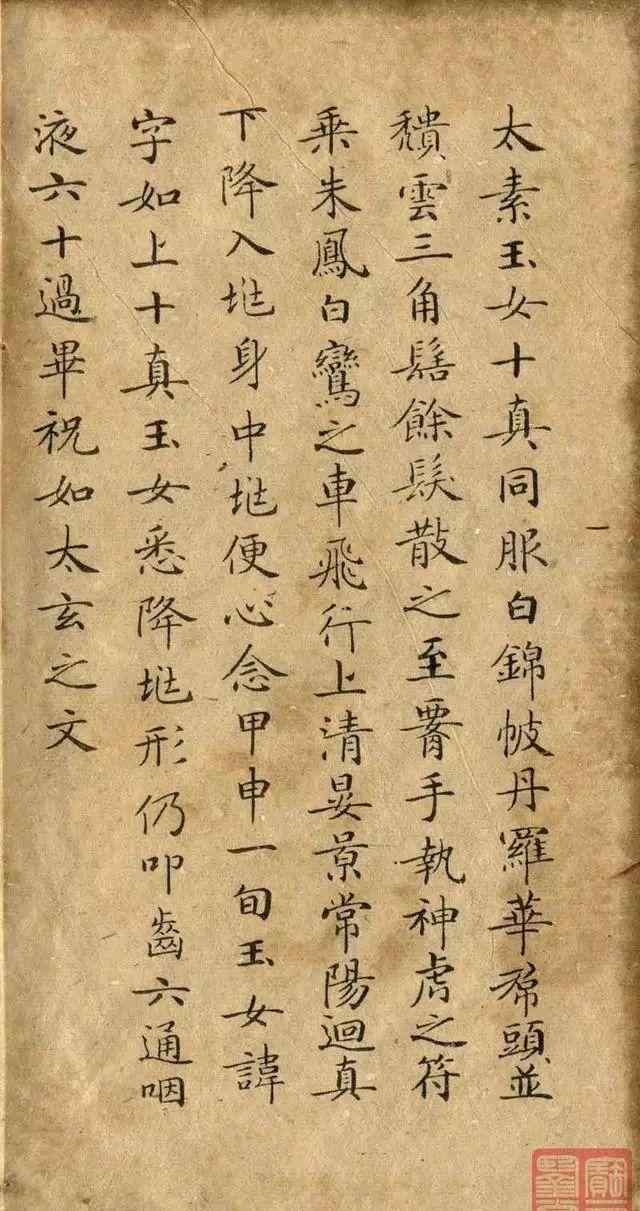 太素玉女十真同服白錦帔丹羅華帬頭並
頹雲三角髻餘髮散之至腰手執神虎之符
乘朱鳳白鸞之車飛行上清晏景常陽迴真
下降入兆身中兆便心念甲申一旬玉女諱
字如上十真玉女悉降兆形仍叩齒六通咽
液六十過畢祝如太玄之文